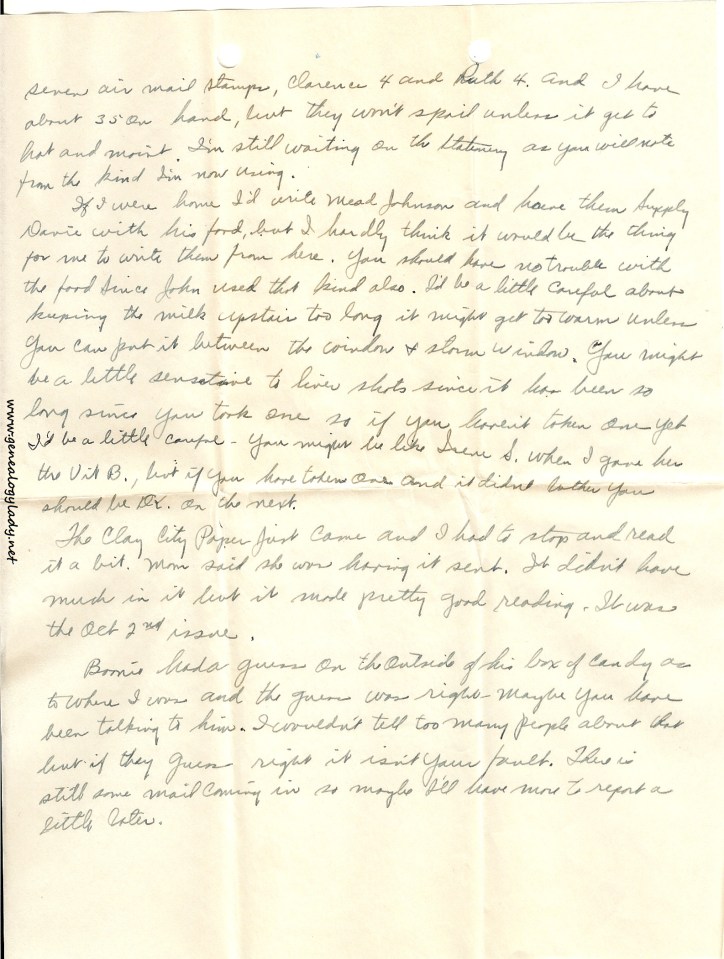 seven air mail stamps, Clarence 4 and Ruth 4. And I have
about 35 on hand, but they won't spoil unless it get to
hot and moist. I'm still waiting on the stationery as you will note
from the kind I'm now using.
If I were home I'd write Mead Johnson and have them supply
Davie with his food, but I hardly think it would be the thing
for me to write them from here. You should have no trouble with
the food since John used that kind also. I'd be a little careful about
keeping the milk upstair too long it might get too warm unless
you can put it between the window & storm window. You might
be a little sensative to liver shots since it has been so
long since you took one so if you haven't taken one yet
I'd be a little careful - You might be like Irene S. when I gave her
the Vit B., but if you have taken one and it didn't bother you
should be O.K. on the next.
The Clay City Paper just came and I had to stop and read
it a bit. Mom said she was having it sent. It didn't have
much in it but it made pretty good reading. It was
the Oct 2nd issue.
Boonie had a guess on the outside of his box of candy as
to where I was and the guess was right - maybe you have
been talking to him. I wouldn't tell too many people about that
but if they guess right it isn't your fault. There is
still some mail coming in so maybe I'll have more to report a
little later.
www.genealogylady.net